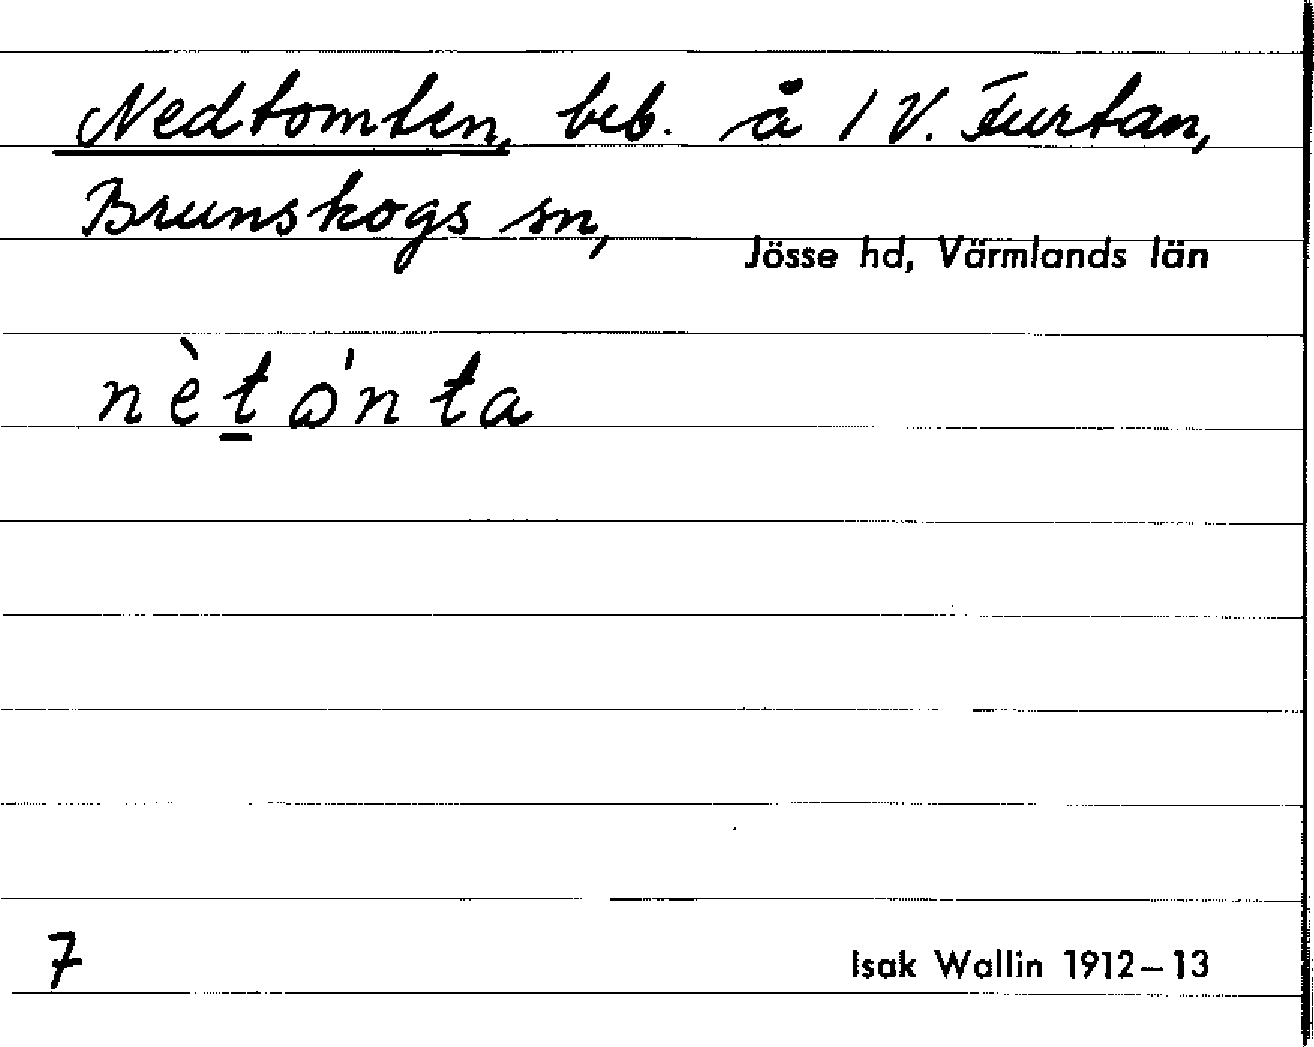 Nedtomten, beb. å 1 V. Furtan,
Brunskogs sn,
Jösse hd, Värmlands län
nètǫ́nta
7
Isak Wallin 1912–13